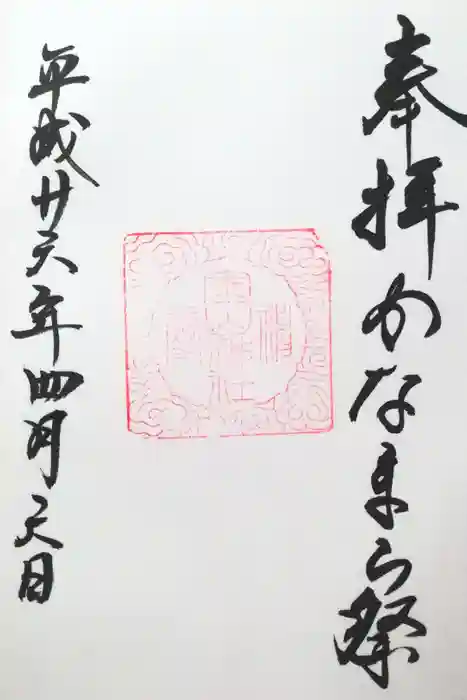 奉拝かなまら祭
平成廿六年四月六日